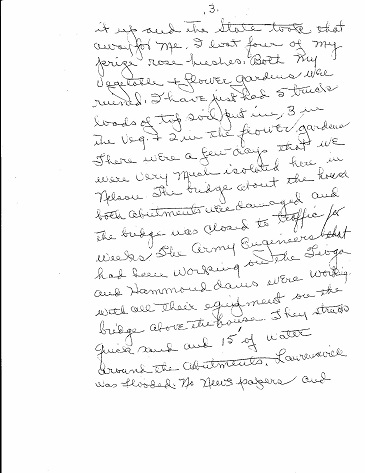 .3.
it up and the State took that
away for me. I lost four of my
prize rose bushes. Both my
vegetable + flower gardens were
ruined. I have just had 5 truck
loads of top soil put in, 3 in
the Veg. + 2 in the flower gardens
There were a few days that we
were very much isolated here in
Nelson The bridge about the house
both abutments were damaged and
the bridge was closed to traffic for
weeks. The Army Engineers that
had been working on the Tioga
and Hammond dams were working
with all their equipment on the
bridge above the house. They struck
quick sand and 15' of water
around the abutments. Lawrenceville
was flooded. No News papers and